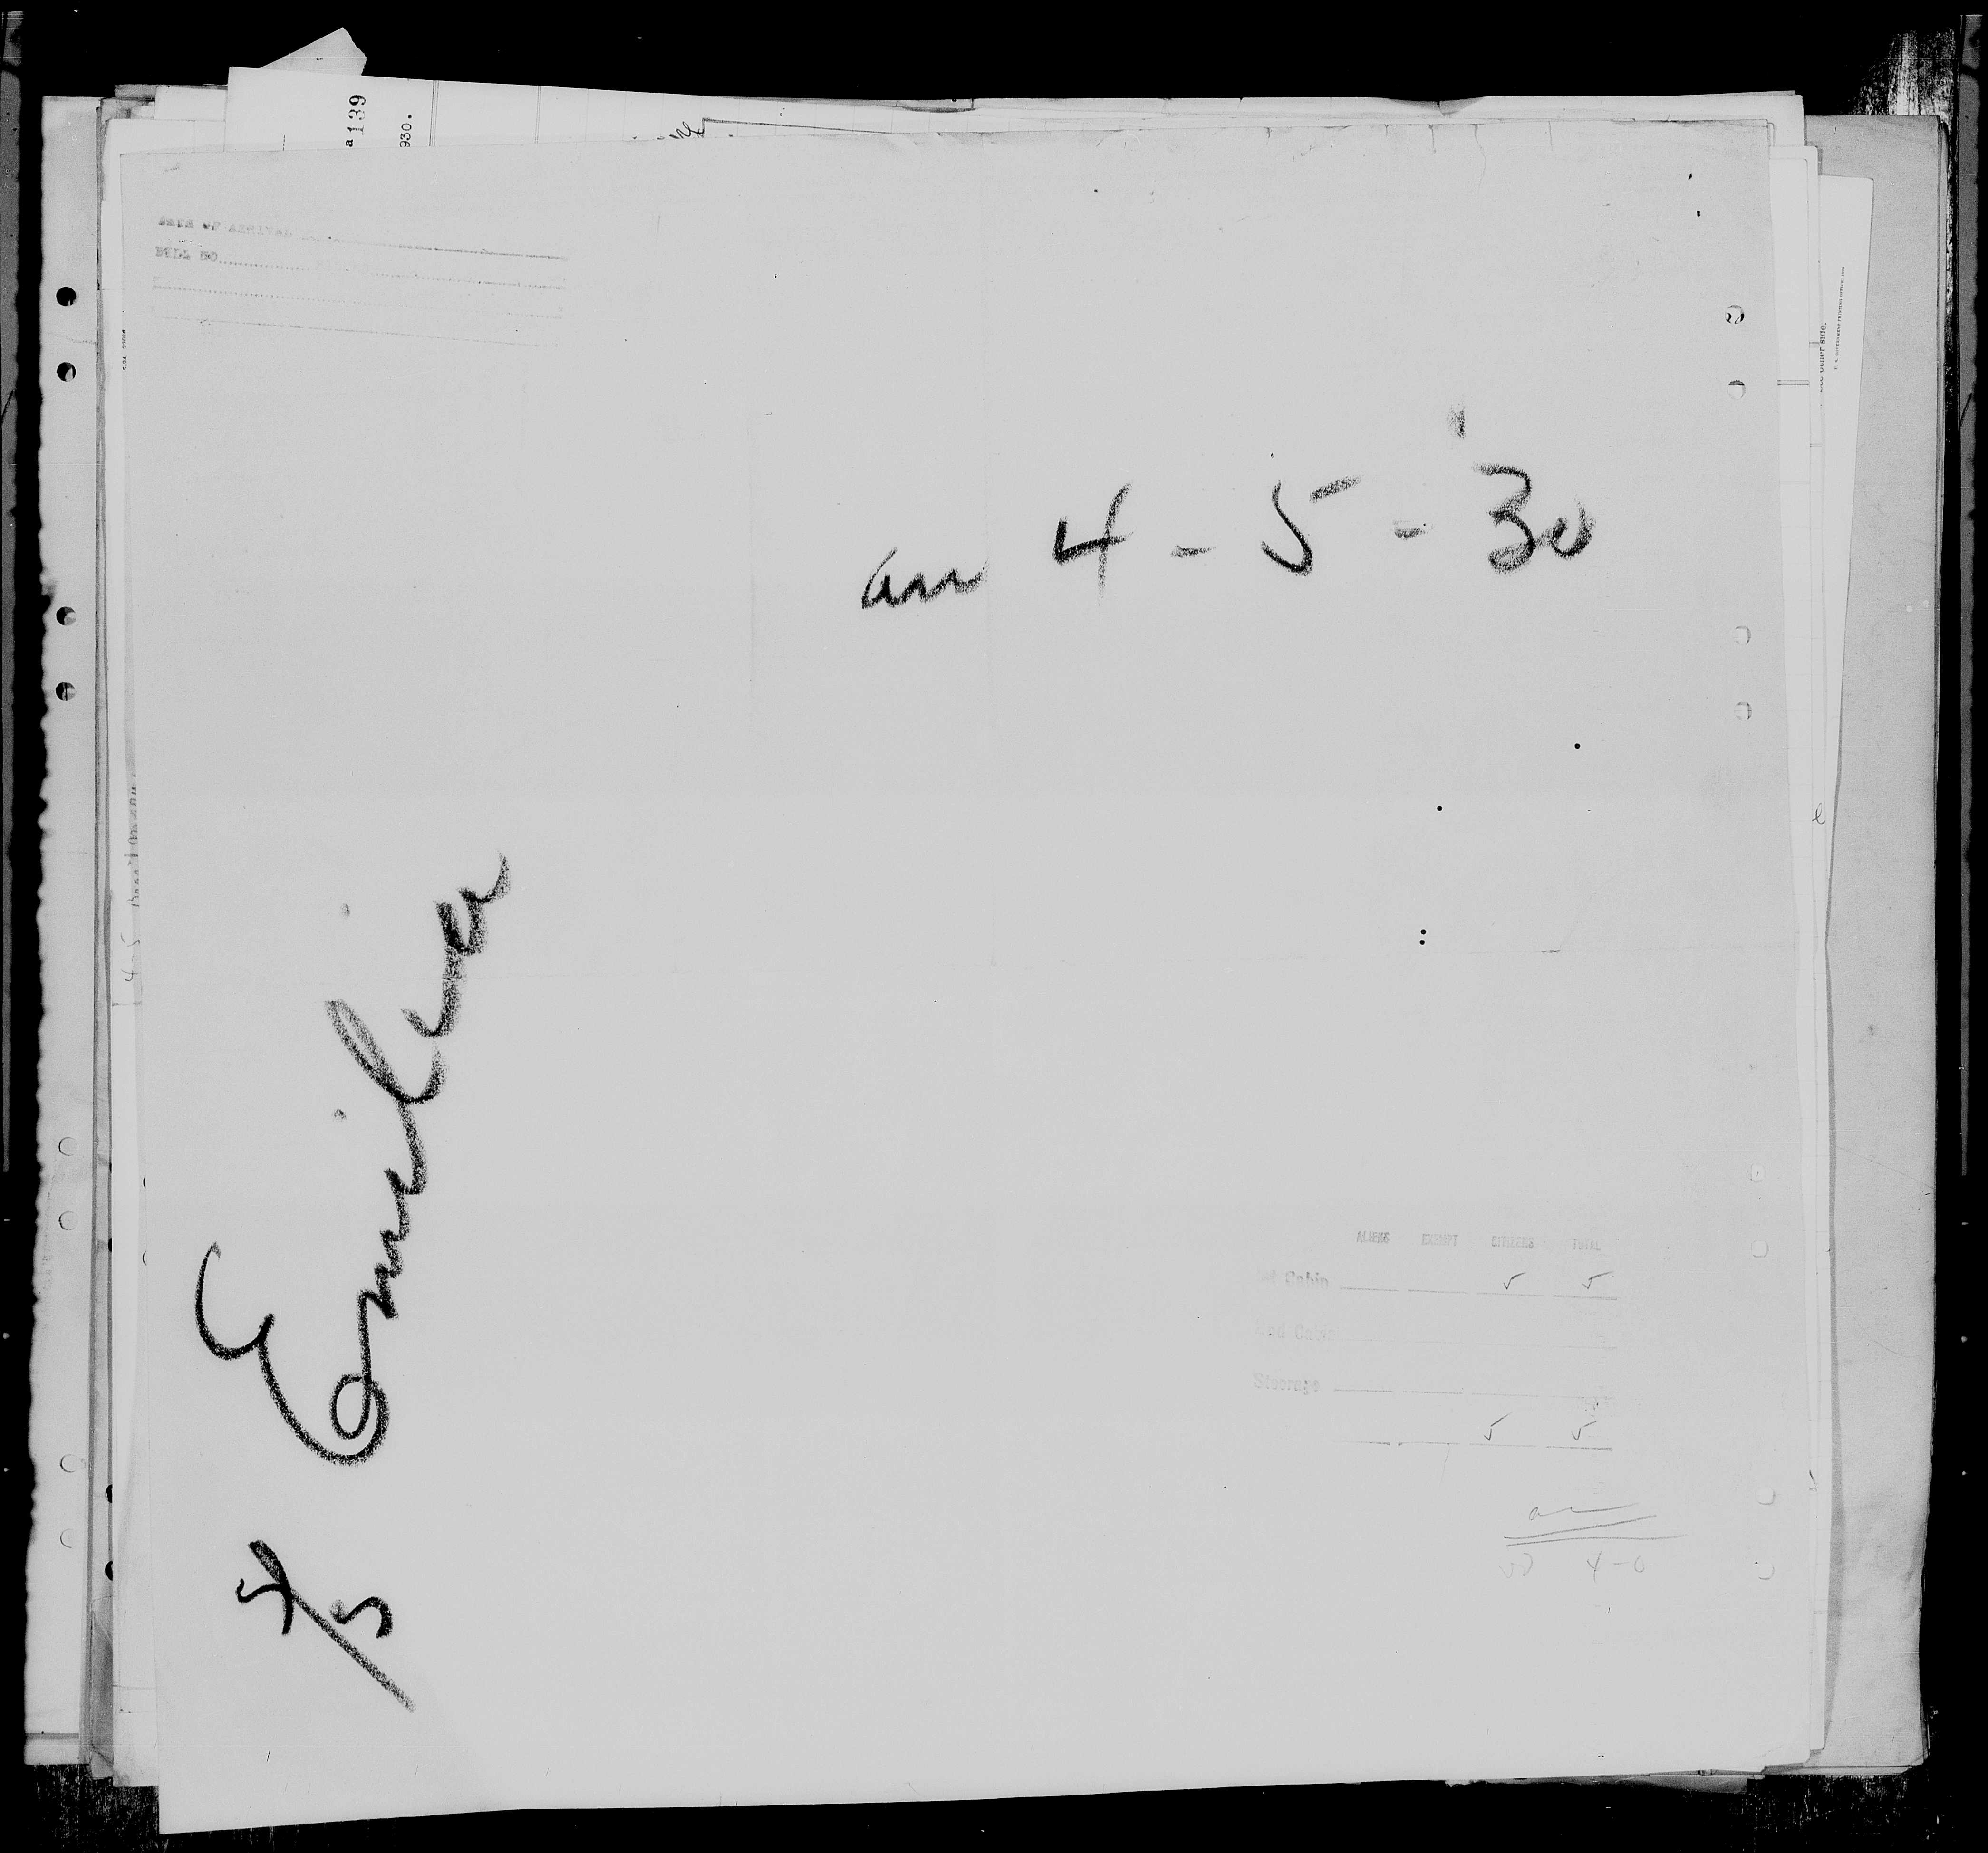 a139
930.
DATE OF ARRIVAL
BILL NO
arr 4-5-'30
S/S Emilia
ALIENS EXEMPT CITIZENS TOTAL
Cabin 5 5
2nd Cabin
Steerage
5 5